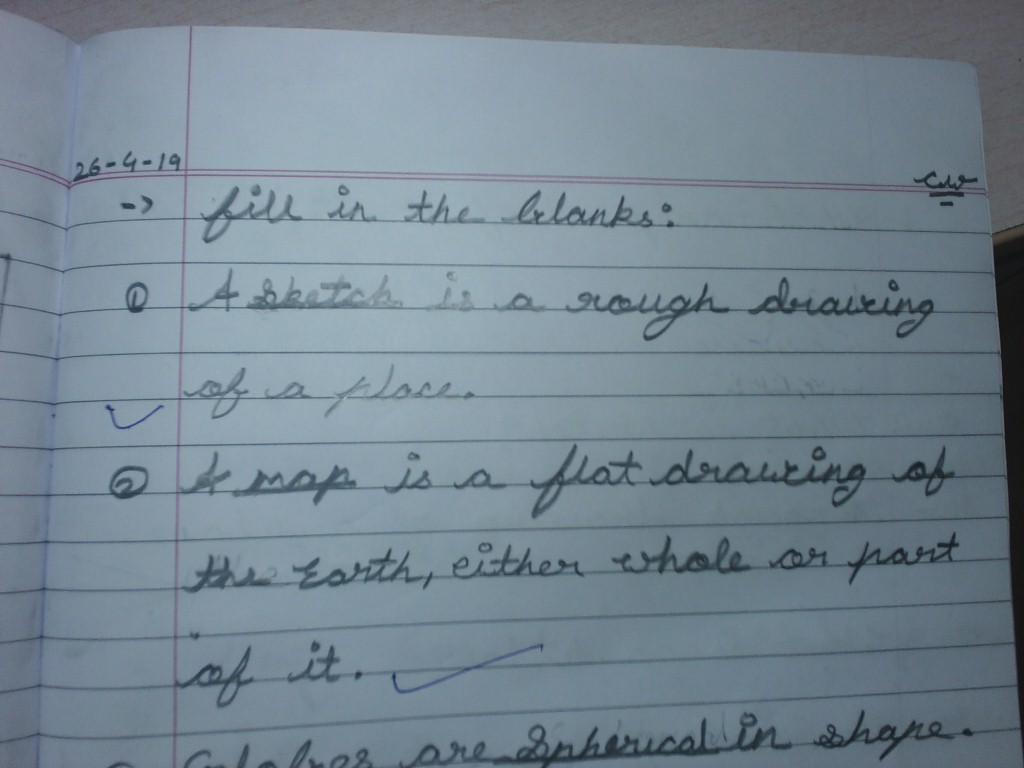 26-4-19
C.W
-> fill in the blanks:
① A sketch is a rough drawing
of a place.
② A map is a flat drawing of
the Earth, either whole or part
of it.
are Spherical in shape.